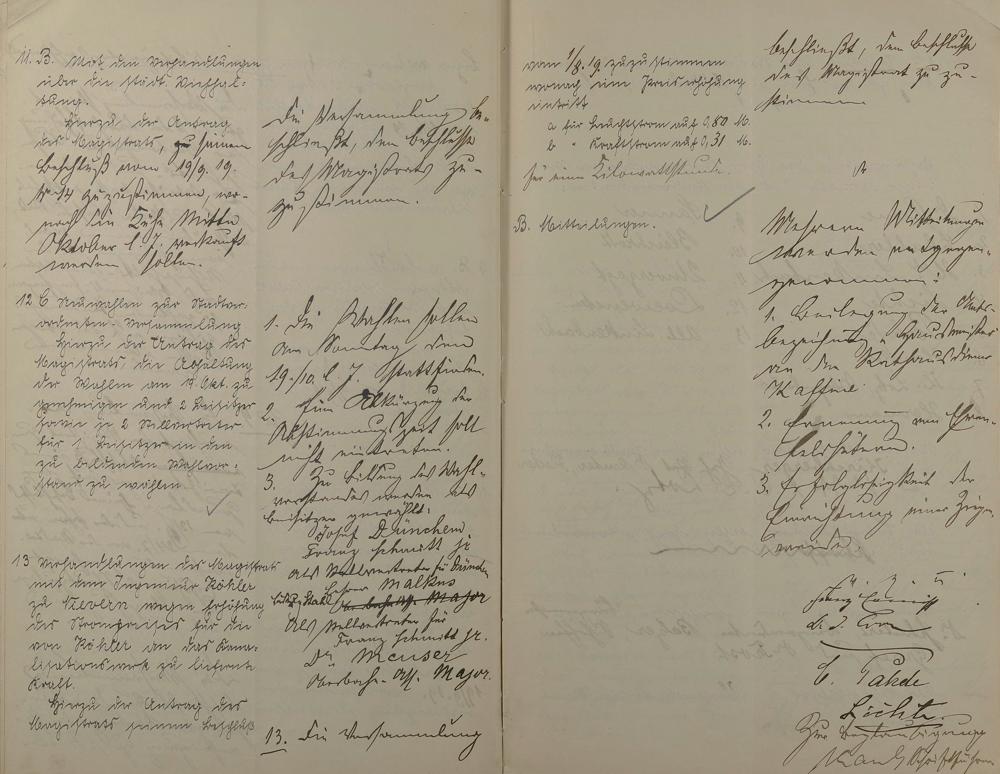 11. B. Mot. den Verhandlungen
über die städt. Viehhal-
tung.
Hierzu der Antrag
des Magistrats, zu seinem
Beschluß vom 19/9. 19.
zuzustimmen, wo-
nach die Kühe Mitte
Oktober l. J. verkauft
werden sollen.
Die Versammlung be-
schließt, dem Beschlusse
des Magistrats zu-
zustimmen.
12 C Neuwahlen zur Stadtver-
ordneten-Versammlung
Hierzu der Antrag des
Magistrats, die Abhaltung
der Wahlen am Okt. zu
genehmigen und 2 Beisitzer
sowie je 2 Stellvertreter
für 1 Beisitzer in den
zu bildenden Wahlvor-
stand zu wählen
1. Die Wahlen sollen
am Sonntag, den
19./10. l. J. stattfinden.
2. Eine Abkürzung der
Abstimmungszeit soll
nicht eintreten.
3. Zu Bildung des Wahl-
vorstandes werden als
Beisitzer gewählt:
Josef Dünchem
Franz Schmitt jr
als Stellvertreter für Dünchem
Malkus
Major
Als Stellvertreter für
Franz Schmitt jr.
Meuser
Oberbahn-Ass. Major.
13 Verhandlungen des Magistrats
mit dem Ingenieur Köhler
zu Nievern wegen Erhöhung
des Strompreises für die
von Köhler an das Kana-
lisationswerk zu liefernde
Kraft.
Hierzu der Antrag des
Magistrats seinem Beschluß
13. Die Versammlung
vom 1/8. 19. zuzustimmen
wonach eine Preiserhöhung
eintritt
a für Leuchtstrom auf 0,80 M.
b " Kraftstrom auf 0,31 M.
für eine Kilowattstunde.
beschließt, dem Beschlusse
des Magistrat zu zu-
stimmen
B. Mitteilungen.
Mehrere Mitteilungen
werden entgegen-
genommen:
1. Beilegung der Amts-
bezeichnung "Hausmeister"
an den Rathausdiener
Kaffine.
2. Ernennung von Ehren-
feldhütern.
3. Erfolglosigkeit der
Einrichtung einer Ziegen-
weide.
v. g. u.
C. Pahde
Lichte
Zur Beglaubigung
Schriftführer